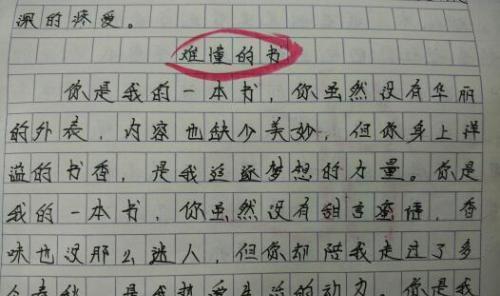 深的疼爱。
难懂的书
你是我的一本书，你虽然没有华丽
的外表，内容也缺少美妙，但你身上洋
溢的书香，是我追逐梦想的力量。你是
我的一本书，你虽然没有甜言蜜语，香
味也没那么迷人，但你却陪我走过了多
个春秋，是我热爱生活的动力。你是我